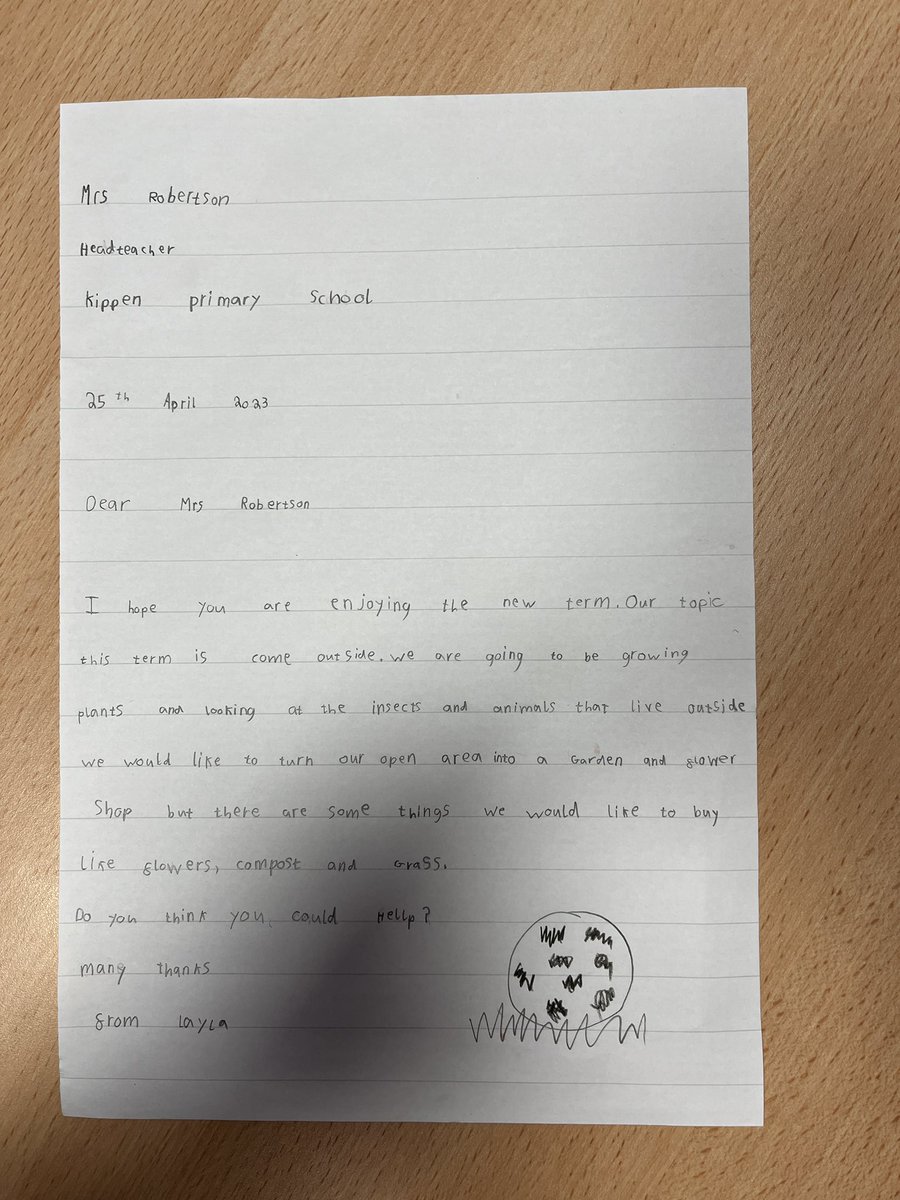 Mrs Robertson
Headteacher
Kippen primary School
25th April 2023
Dear Mrs Robertson
I hope you are enjoying the new term. Our topic
this term is come outside. we are going to be growing
plants and looking at the insects and animals that live outside
we would like to turn our open area into a Garden and flower
Shop but there are some things we would like to buy
like flowers, compost and Grass.
Do you think you could Hellp?
many thanks
from Layla